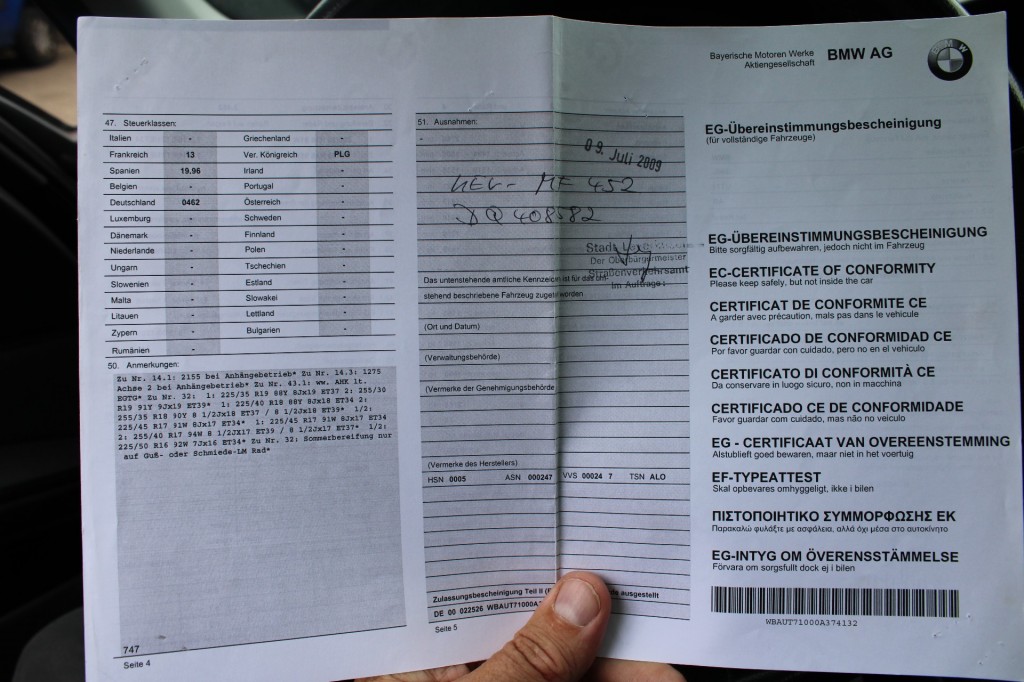 47. Steuerklassen:
Italien - Griechenland -
Frankreich 13 Ver. Königreich PLG
Spanien 19.96 Irland -
Belgien - Portugal -
Deutschland 0462 Österreich -
Luxemburg - Schweden -
Dänemark - Finnland -
Niederlande - Polen -
Ungarn - Tschechien -
Slowenien - Estland -
Malta - Slowakei -
Litauen - Lettland -
Zypern - Bulgarien -
Rumänien -
50. Anmerkungen:
Zu Nr. 14.1: 2155 bei Anhängebetrieb* Zu Nr. 14.3: 1275
Achse 2 bei Anhängebetrieb* Zu Nr. 43.1: ww. AHK lt.
EGTG* Zu Nr. 32: 1: 225/35 R19 88Y 8Jx19 ET37 2: 255/30
R19 91Y 9Jx19 ET39* 1: 225/40 R18 88Y 8Jx18 ET34 2:
255/35 R18 90Y 8 1/2Jx18 ET37 / 8 1/2Jx18 ET39* 1/2:
225/45 R17 91W 8Jx17 ET34* 1: 225/45 R17 91W 8Jx17 ET34
2: 255/40 R17 94W 8 1/2JX17 ET39 / 8 1/2JX17 ET37* 1/2:
225/50 R16 92W 7Jx16 ET34* Zu Nr. 32: Sommerbereifung nur
auf Guß- oder Schmiede-LM Rad*
747
Seite 4
51. Ausnahmen:
-
09. Juli 2009
MF 452
DQ 408582
Stadt
Der Oberbürgermeister
Straßenverkehrsamt
Im Auftrage:
Das untenstehende amtliche Kennzeichen ist für das
stehend beschriebene Fahrzeug zugeteilt worden
(Ort und Datum)
(Verwaltungsbehörde)
(Vermerke der Genehmigungsbehörde
(Vermerke des Herstellers)
HSN 0005 ASN 000247 VVS 00024 7 TSN ALO
Zulassungsbescheinigung Teil II ausgestellt
DE 00 022526 WBAUT71000A
Seite 5
Bayerische Motoren Werke
Aktiengesellschaft
BMW AG
BMW
EG-Übereinstimmungsbescheinigung
(für vollständige Fahrzeuge)
EG-ÜBEREINSTIMMUNGSBESCHEINIGUNG
Bitte sorgfältig aufbewahren, jedoch nicht im Fahrzeug
EC-CERTIFICATE OF CONFORMITY
Please keep safely, but not inside the car
CERTIFICAT DE CONFORMITE CE
A garder avec précaution, mais pas dans le vehicule
CERTIFICADO DE CONFORMIDAD CE
Por favor guardar con cuidado, pero no en el vehiculo
CERTIFICATO DI CONFORMITÀ CE
Da conservare in luogo sicuro, non in macchina
CERTIFICADO CE DE CONFORMIDADE
Favor guardar com cuidado, mas não no veiculo
EG - CERTIFICAAT VAN OVEREENSTEMMING
Alstublieft goed bewaren, maar niet in het voertuig
EF-TYPEATTEST
Skal opbevares omhyggeligt, ikke i bilen
ΠΙΣΤΟΠΟΙΗΤΙΚΟ ΣΥΜΜΟΡΦΩΣΗΣ ΕΚ
Παρακαλώ φυλάξτε με ασφάλεια, αλλά όχι μέσα στο αυτοκίνητο
EG-INTYG OM ÖVERENSSTÄMMELSE
Förvara om sorgsfullt dock ej i bilen
WBAUT71000A374132